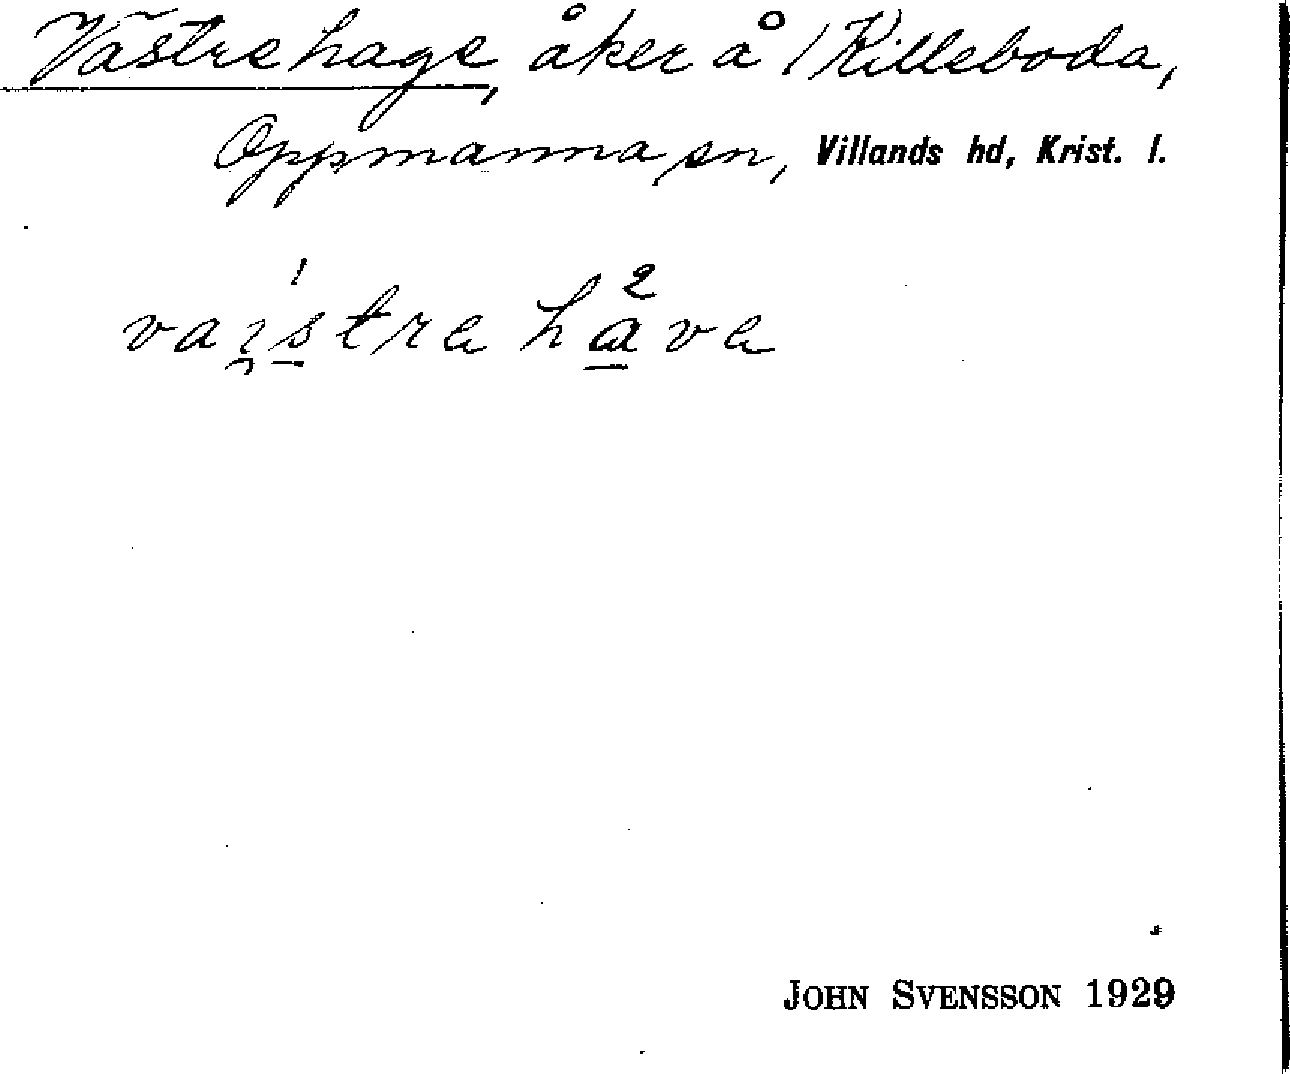 Västrehage, åker å 1 Killeboda,
Oppmanna sn, Villands hd, Krist. l.
vaistra håva
JOHN SVENSSON 1929